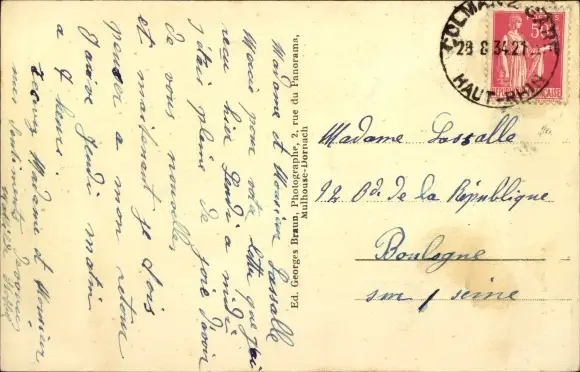 Madame et Monsieur Lassalle
Merci pour votre lettre que j'ai
reçu hier Lundi a midi
j'étais pleine de joie d'avoir
de vous nouvelles,
et maintenant je dois
penser a mon retour
J'arrive Jeudi matin
a 7 heures.
Madame et Monsieur
Ed. Georges Braun, Photographe, 2, rue du Panorama,
Mulhouse-Dornach
COLMAR GARE
28 8 34 21
HAUT-RHIN
50c
Madame Lassalle
92 Bd. de la République
Boulogne
sur / seine